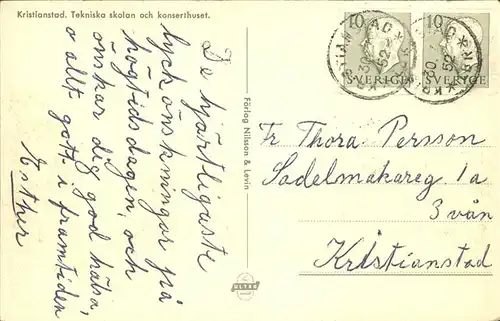 Kristianstad. Tekniska skolan och konserthuset.
De hjärtligaste
lyckönskningar på
högtidsdagen, och
önskar dig god hälsa,
o allt gott i framtiden
Esther
Förlag Nilsson & Levin
ULTRA
10
10
SVERIGE
SVERIGE
Fr Thora Persson
Sadelmakareg 1a
3 vån
Kristianstad